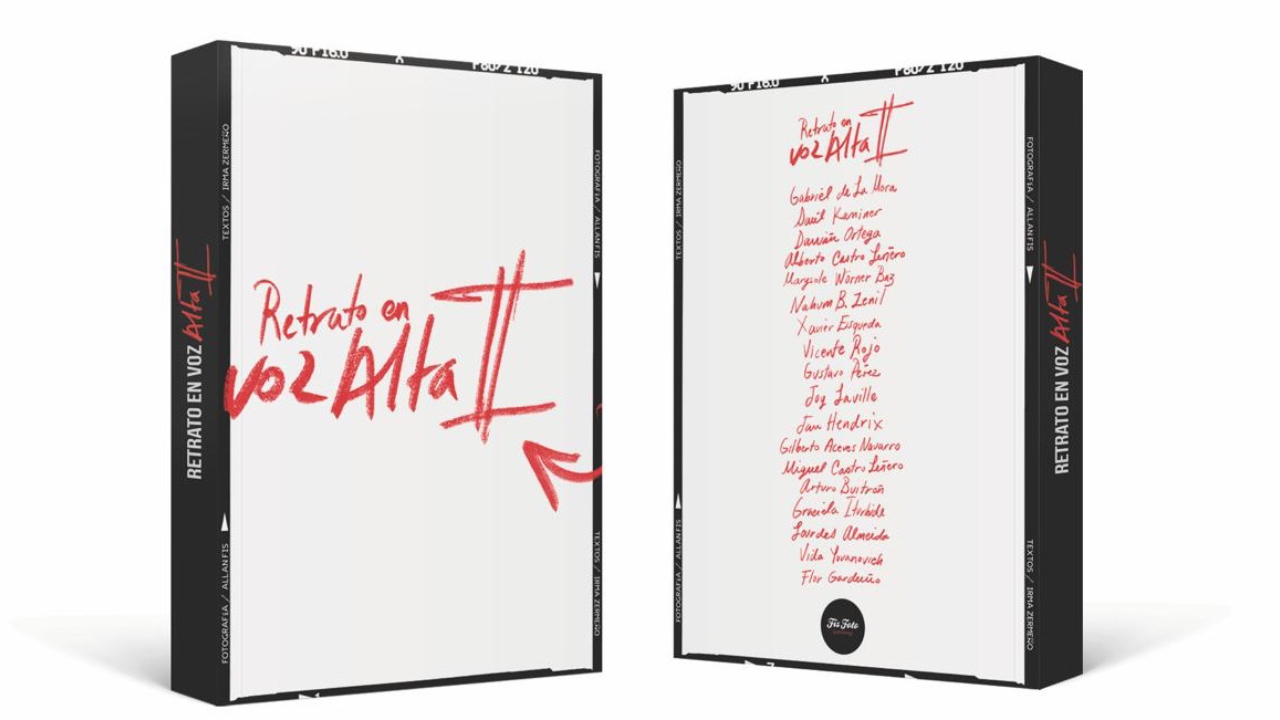 90 F16.0
X
F80/Z 120
TEXTOS / IRMA ZERMEÑO
FOTOGRAFÍA / ALLAN FIS
RETRATO EN VOZ Alta II
Retrato en
voz Alta II
FOTOGRAFÍA / ALLAN FIS
TEXTOS / IRMA ZERMEÑO
90 F16.0
X
F80/Z 120
TEXTOS / IRMA ZERMEÑO
FOTOGRAFÍA / ALLAN FIS
Retrato en
voz Alta II
Gabriel de La Mora
Saúl Kaminer
Damián Ortega
Alberto Castro Leñero
Marysole Wörner Baz
Nahum B. Zenil
Xavier Esqueda
Vicente Rojo
Gustavo Pérez
Joy Laville
Jan Hendrix
Gilberto Aceves Navarro
Miguel Castro Leñero
Arturo Buitrón
Graciela Iturbide
Lourdes Almeida
Vida Yovanovich
Flor Garduño
Fis Foto
FOTOGRAFÍA / ALLAN FIS
TEXTOS / IRMA ZERMEÑO
RETRATO EN VOZ Alta II